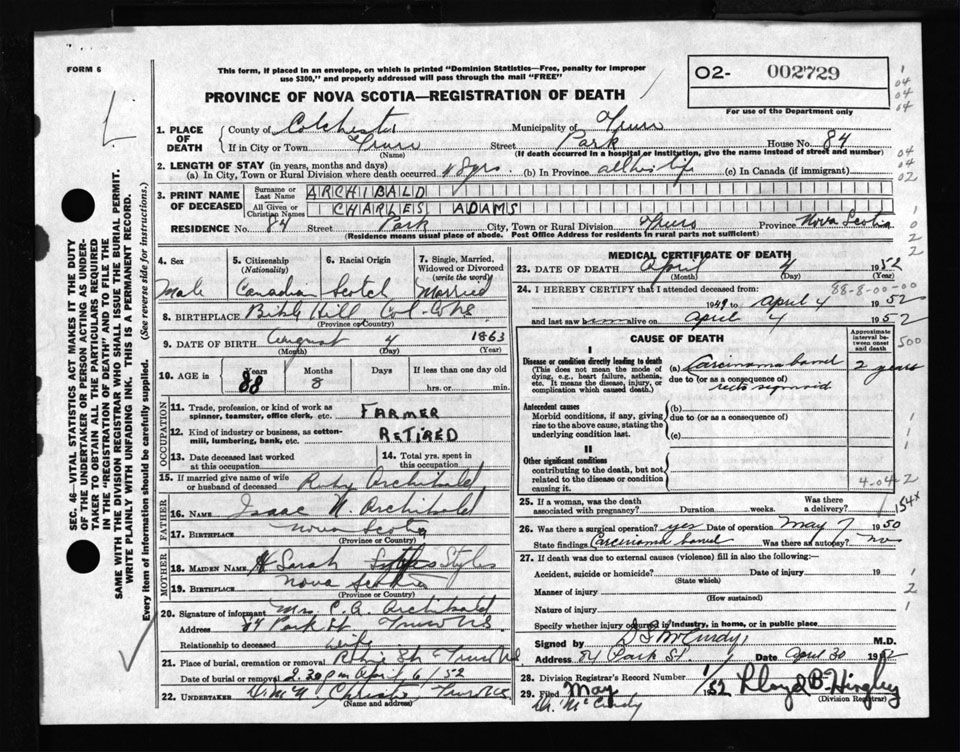 FORM 6
This form, if placed in an envelope, on which is printed "Dominion Statistics—Free, penalty for improper
use $300," and properly addressed will pass through the mail "FREE"
02- 002729
PROVINCE OF NOVA SCOTIA—REGISTRATION OF DEATH
For use of the Department only
1. PLACE OF DEATH
County of Colchester Municipality of Truro
If in City or Town Truro Street Park House No. 84
(Name) (If death occurred in a hospital or institution, give the name instead of street and number)
2. LENGTH OF STAY (in years, months and days)
(a) In City, Town or Rural Division where death occurred 48yrs. (b) In Province all his life (c) In Canada (if immigrant)
3. PRINT NAME OF DECEASED
Surname or Last Name ARCHIBALD
All Given or Christian Names CHARLES ADAMS
RESIDENCE No. 84 Street Park City, Town or Rural Division Truro Province Nova Scotia
(Residence means usual place of abode. Post Office Address for residents in rural parts not sufficient)
4. Sex
Male
5. Citizenship (Nationality)
Canadian
6. Racial Origin
Scotch
7. Single, Married, Widowed or Divorced (write the word)
Married
8. BIRTHPLACE Bible Hill, Col. Co NS.
(Province or Country)
9. DATE OF BIRTH August 4 1863
(Month) (Day) (Year)
10. AGE in Years 88 Months 8 Days If less than one day old
hrs. or min.
OCCUPATION
11. Trade, profession, or kind of work as spinner, teamster, office clerk, etc. FARMER
12. Kind of industry or business, as cotton-mill, lumbering, bank, etc. RETIRED
13. Date deceased last worked at this occupation
14. Total yrs. spent in this occupation
15. If married give name of wife or husband of deceased Ruby Archibald
FATHER
16. NAME Isaac N. Archibald
17. BIRTHPLACE Nova Scotia
(Province or Country)
MOTHER
18. MAIDEN NAME Sarah Styles
19. BIRTHPLACE Nova Scotia
(Province or Country)
20. Signature of informant Mrs. C. A. Archibald
Address 84 Park St. Truro N.S.
Relationship to deceased wife
21. Place of burial, cremation or removal Truro
Date of burial or removal 2.30 pm April 6/52
22. UNDERTAKER Truro NS
(Name and address)
MEDICAL CERTIFICATE OF DEATH
23. DATE OF DEATH April 4 1952
(Month) (Day) (Year)
24. I HEREBY CERTIFY that I attended deceased from: 88-8-00-00
1949 to April 4 1952
and last saw him alive on April 4 1952
CAUSE OF DEATH
Approximate interval between onset and death
I
Disease or condition directly leading to death
(This does not mean the mode of dying, e.g., heart failure, asthenia, etc. It means the disease, injury, or complication which caused death.)
(a) Carcinoma bowel 2 years
due to (or as a consequence of)
recto sigmoid
Antecedent causes
Morbid conditions, if any, giving rise to the above cause, stating the underlying condition last.
(b)
due to (or as a consequence of)
(c)
II
Other significant conditions
contributing to the death, but not related to the disease or condition causing it.
4-04-2
25. If a woman, was the death associated with pregnancy? Duration weeks. Was there a delivery?
154X
26. Was there a surgical operation? yes Date of operation May 7 1950
State findings Carcinoma bowel Was there an autopsy? no
27. If death was due to external causes (violence) fill in also the following:—
Accident, suicide or homicide? Date of injury 19
(State which)
Manner of injury
(How sustained)
Nature of injury
Specify whether injury occurred in industry, in home, or in public place
Signed by McCurdy M.D.
Address 84 Park St. Date April 30 1952
28. Division Registrar's Record Number
29. Filed May 1/52 Lloyd B. Hingley
(Division Registrar)
Dr. McCurdy
SEC. 46—VITAL STATISTICS ACT MAKES IT THE DUTY
OF THE UNDERTAKER OR PERSON ACTING AS UNDER-
TAKER TO OBTAIN ALL THE PARTICULARS REQUIRED
IN THE "REGISTRATION OF DEATH" AND TO FILE THE
SAME WITH THE DIVISION REGISTRAR WHO SHALL ISSUE THE BURIAL PERMIT.
WRITE PLAINLY WITH UNFADING INK. THIS IS A PERMANENT RECORD.
Every item of information should be carefully supplied. (See reverse side for instructions.)